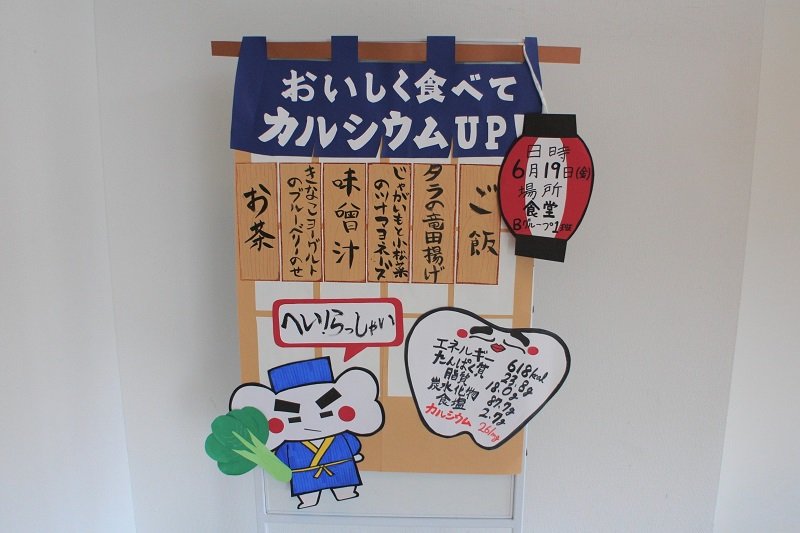 おいしく食べて
カルシウムUP!
日時
6月19日(金)
場所
食堂
Bグループ1班
ご飯
タラの竜田揚げ
じゃがいもと小松菜
のツナマヨネーズ
味噌汁
きなこヨーグルト
のブルーベリーのせ
お茶
へい!らっしゃい
エネルギー 618kcal
たんぱく質 23.8g
脂質 18.0g
炭水化物 87.7g
食塩 2.7g
カルシウム 261mg